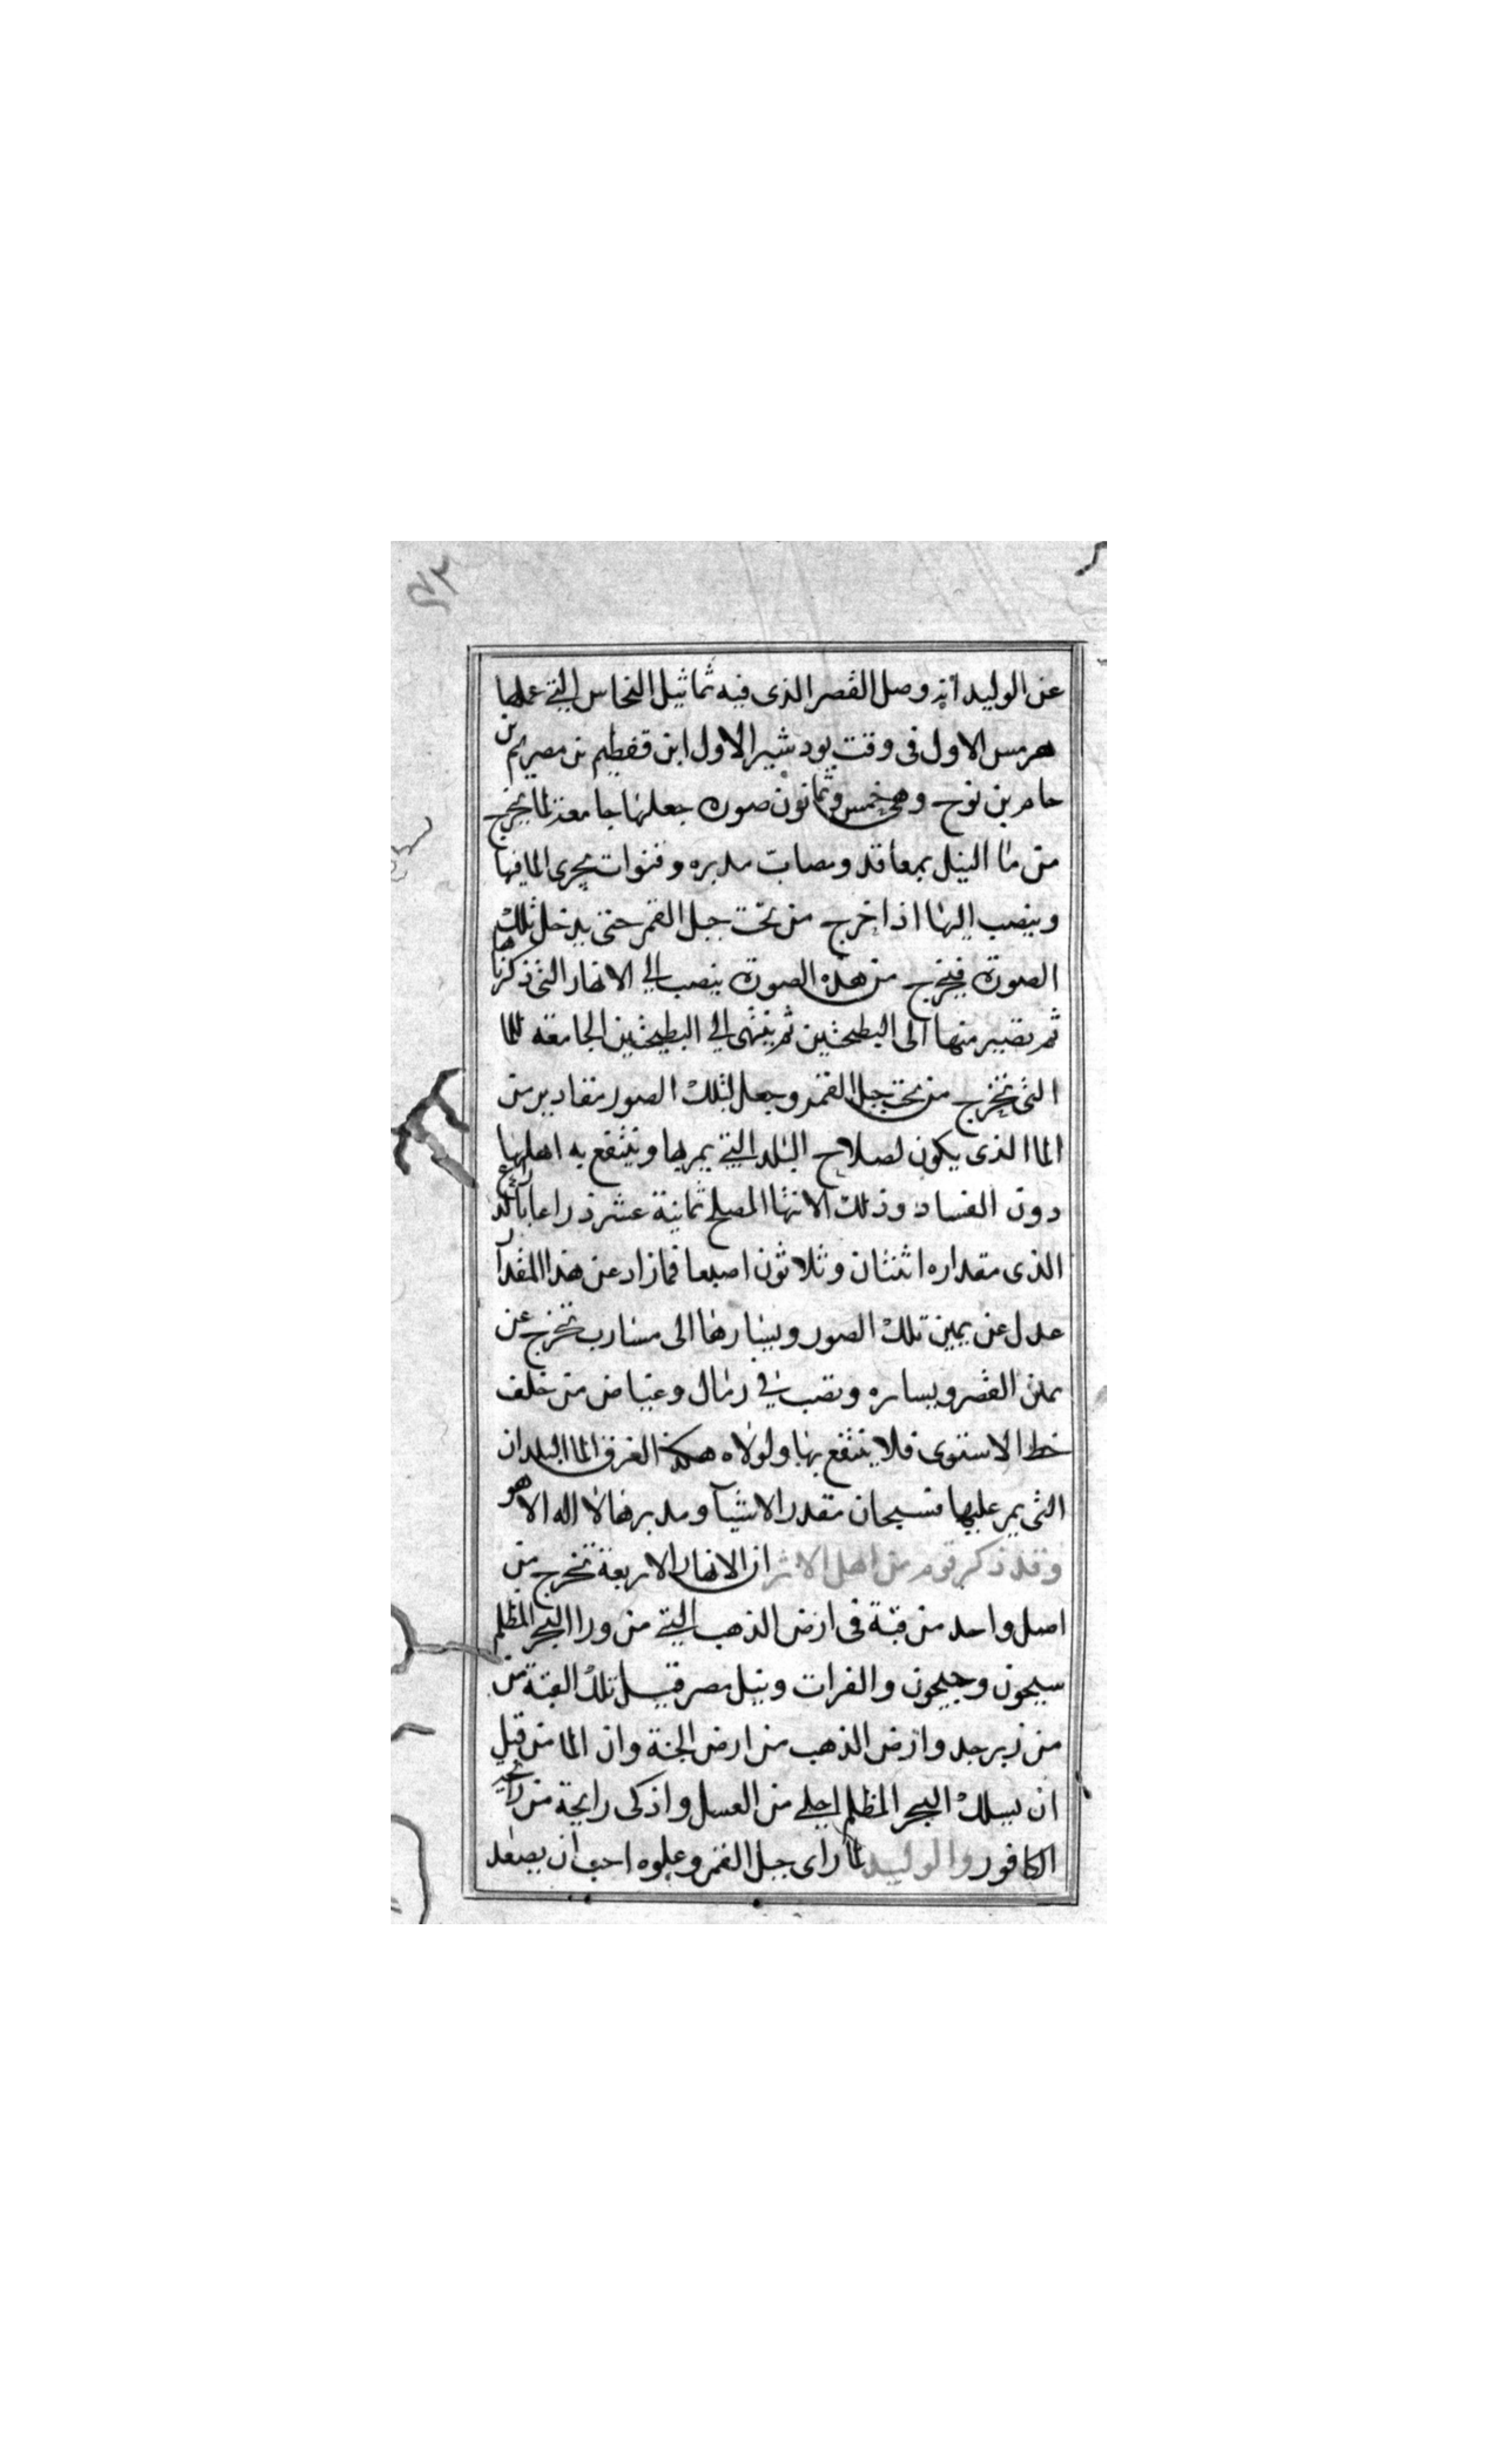 ٧٣
عن الوليد انه وصل القصر الذى فيه تماثيل النحاس التي عملها
هرمس الاول فى وقت بودشير الاول ابن قفطيم بن مصريم بن
حام بن نوح وهى خمس وثمانون صورة جعلها جامعة لما يخرج
من ما النيل بمعاقد ومصابّ مدبره وقنوات يجرى الما فيها
وينصب اليها اذا خرج من تحت جبل القمر حتى يدخل تلك
الصورة فيخرج من هذه الصورة ينصب الي الانهار التى ذكرناها
ثم تصير منها الى البطيحتين ثم ينتهى الي البطيحتين الجامعة للما
التى تخرج من تحت جبل القمر وجعل لتلك الصور مقادير من
الما الذى يكون لصلاح البلد التي يمر بها وينتفع به اهلها
دون الفساد وذلك الانتها المصلح ثمانية عشر ذراعا بالذراع
الذى مقداره اثنتان وثلاثون اصبعا فمازاد عن هذا المقدار
عدل عن يمين تلك الصور ويسارها الى مسارب تخرج عن
يمين القصر ويساره وتصب في رمال وغياض من خلف
خط الاستوى فلا ينتفع بها ولولاه هكذا لغرق الما البلدان
التى يمر عليها فسبحان مقدر الاشيآ ومدبرها لا اله الا هو
وقد ذكر قوم من اهل الاثر ان الانهار الاربعة تخرج من
اصل واحد من قبة فى ارض الذهب التي من ورا البحر المظلم
سيحون وجيحون والفرات ونيل مصر قيل تلك القبة من
من زبرجد وارض الذهب من ارض الجنة وان الما من قبل
ان يسلك البحر المظلم احلي من العسل واذكى رايحة من رايحة
الكافور والوليد لما راى جبل القمر وعلوه احب ان يصعد